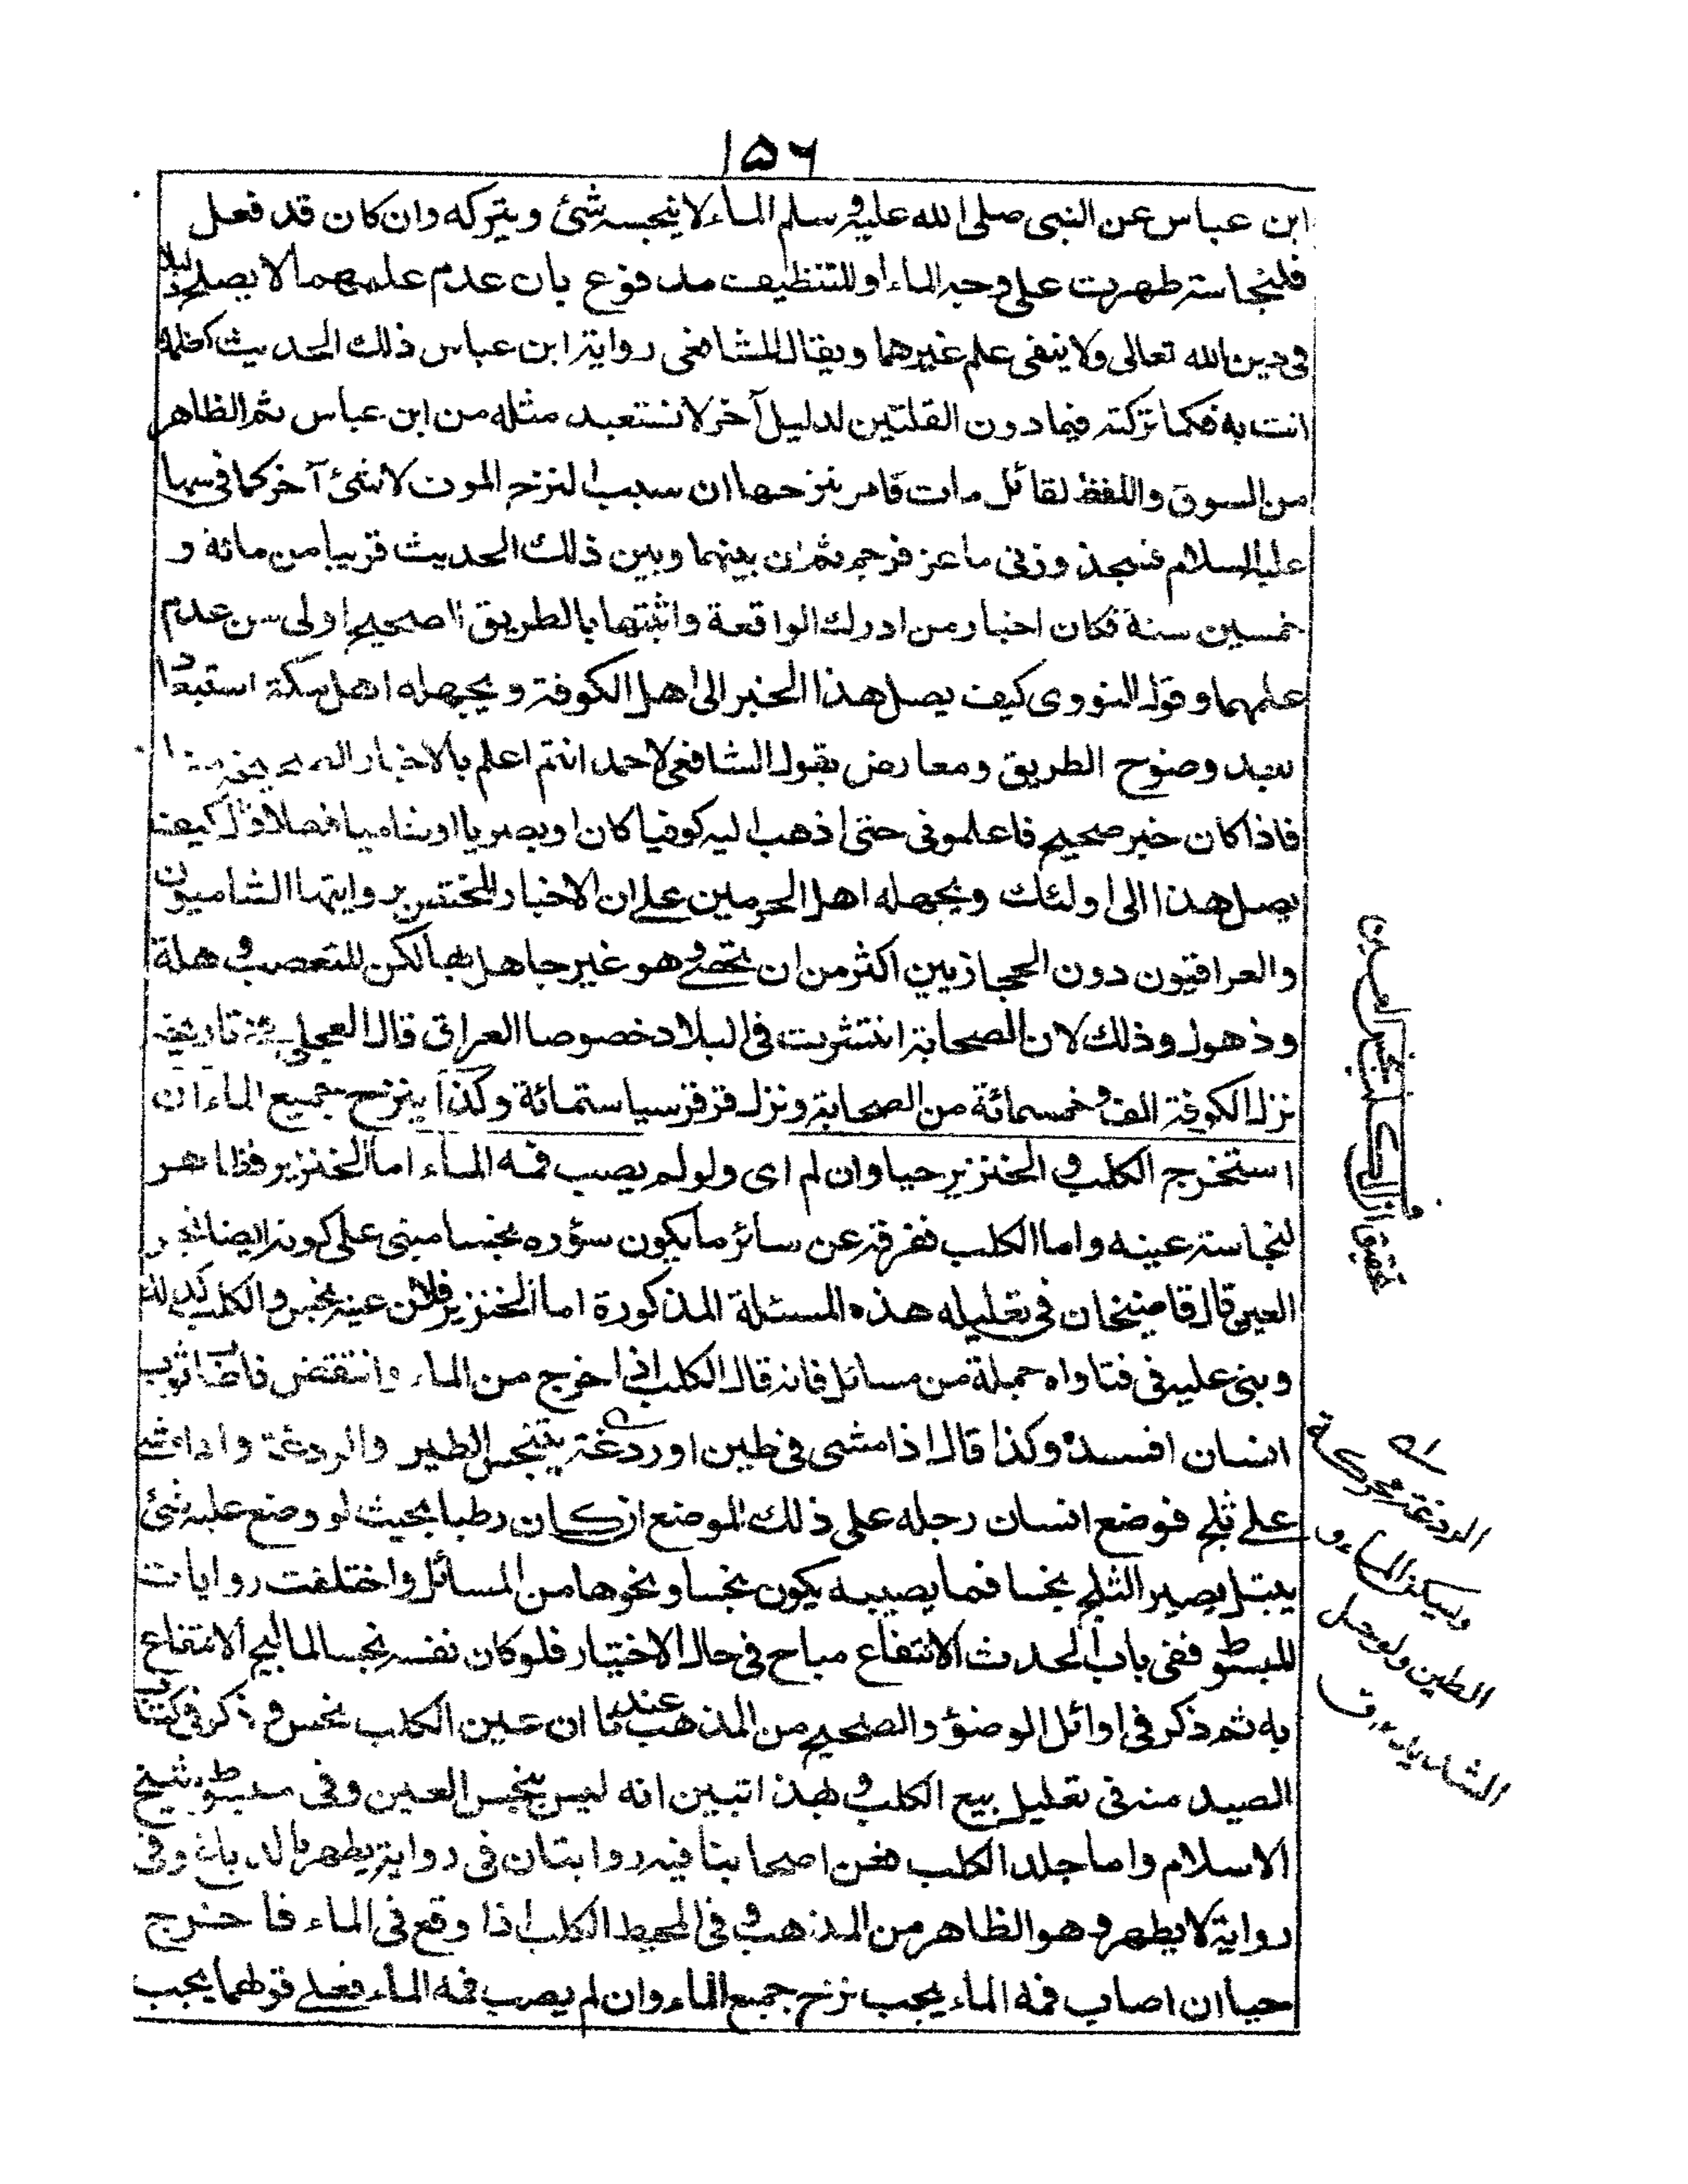 ١٥٦
ابن عباس عن النبى صلى الله عليه وسلم الماء لا ينجسه شئ ويتركه وان كان قد فعل
فلنجاسة ظهرت على وجه الماء او للتنظيف مدفوع بان عدم علمهما لا يصلح دليلا
فى دين الله تعالى ولا ينفى علم غيرهما ويقال للشافعى رواية ابن عباس ذلك الحديث كعلمك
انت به فكما تركته فيما دون القلتين لدليل آخر لا نستبعد مثله من ابن عباس ثم الظاهر
من السوق واللفظ لقائل مات فامر بنزحها ان سبب النزح الموت لا شئ آخر كما فى سها
عليه السلام فسجد وزنى ماعز فرجم ثم ان بينهما وبين ذلك الحديث قريبا من مائة و
خمسين سنة فكان اخبار من ادرك الواقعة واثبتها بالطريق الصحيح اولى من عدم
علمهما وقول النووى كيف يصل هذا الخبر الى اهل الكوفة ويجهله اهل مكة استبعاد
بعيد وضوح الطريق ومعارض بقول الشافعى لاحمد انتم اعلم بالاخبار الصحيحة منا
فاذا كان خبر صحيح فاعلمونى حتى اذهب اليه كوفيا كان او بصريا او شاميا فهلا قال كيف
يصل هذا الى اولئك ويجهله اهل الحرمين على ان الاخبار المختص بروايتها الشاميون
والعراقيون دون الحجازيين اكثر من ان تحصى وهو غير جاهل بها لكن للتعصب وهلة
وذهول وذلك لان الصحابة انتشرت فى البلاد خصوصا العراق قال العجلى فى تاريخه
نزل الكوفة الف وخمسمائة من الصحابة ونزل قرقرسيا ستمائة وكذا ينزح جميع الماء ان
استخرج الكلب والخنزير حيا وان لم اى ولو لم يصب فمه الماء اما الخنزير فظاهر
لنجاسة عينه واما الكلب نفرقه عن سائر ما يكون سؤره نجسا مبنى على كونه ايضا نجس
العين قال قاضيخان فى تعليله هذه المسئلة المذكورة اما الخنزير فلان عينه نجس والكلب كذلك
وبنى عليه فى فتاواه جملة من مسائل فانه قال الكلب اذا خرج من الماء وانتفض فاصاب ثوب
انسان افسده وكذا قال اذا مشى فى طين او ردغة يتنجس الطين والردغة واذا مشى
على ثلج فوضع انسان رجله على ذلك الموضع ان كان رطبا بحيث لو وضع عليه شئ
يبتل يصير الثلج نجسا فما يصيبه يكون نجسا ونحوها من المسائل واختلفت روايات
المبسوط ففى باب الحدث الانتفاع مباح فى حال الاختيار فلو كان نفسه نجسا لما ابيح الانتفاع
به ثم ذكر فى اوائل الوضوء والصحيح من المذهب عندنا ان عين الكلب نجس وذكر فى كتاب
الصيد منه فى تعليل بيع الكلب وبهذا تبين انه ليس بنجس العين وفى مبسوط شيخ
الاسلام واما جلد الكلب فعن اصحابنا فيه روايتان فى رواية يطهر بالدباغ وفى
رواية لا يطهر وهو الظاهر من المذهب وفى المحيط الكلب اذا وقع فى الماء فاخرج
حيا ان اصاب فمه الماء يجب نزح جميع الماء وان لم يصب فمه الماء فعلى قولهما يجب
تحقيق ان الكلب نجس العين
الردغة محركة
ويسكن الماء و
الطين والوحل
الشديد ق